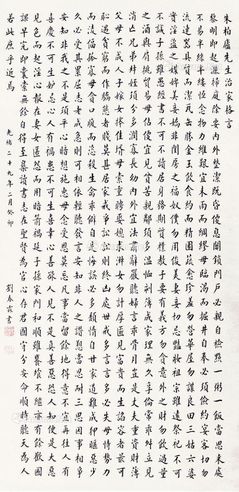 朱柏廬先生治家格言
黎明即起灑掃庭除要內外整潔既昏便息關鎖門戶必親自檢點一粥一飯當思來處
不易半絲半縷恆念物力維艱宜未雨而綢繆毋臨渴而掘井自奉必須儉約宴客切勿
流連器具質而潔瓦缶勝金玉飲食約而精園蔬愈珍羞勿營華屋勿謀良田三姑六婆
實淫盜之媒婢美妾嬌非閨房之福奴僕勿用俊美妻妾切忌豔妝祖宗雖遠祭祀不可
不誠子孫雖愚經書不可不讀居身務期質樸教子要有義方勿貪意外之財勿飲過量
之酒與肩挑貿易毋佔便宜見貧苦親鄰須多溫恤刻薄成家理無久享倫常乖舛立見
消亡兄弟叔姪須多分潤寡長幼內外宜法肅辭嚴聽婦言乖骨肉豈是丈夫重資財薄
父母不成人子嫁女擇佳壻毋索重聘娶媳求淑女勿計厚奩見富貴而生諂容者最可
恥遇貧窮而作驕態者賤莫甚居家戒爭訟訟則終凶處世戒多言言多必失毋恃勢力
而凌逼孤寡毋貪口腹而恣殺生命乖僻自是悔誤必多頹惰自甘家道難成狎暱惡少
久必受其累屈志老成急則可相依輕聽發言安知非人之譖愬當忍耐三思因事相爭
安知非我之不是須平心暗想施惠毋念受恩莫忘凡事當留餘地得意不宜再往人有
喜慶不可生妒忌心人有禍患不可生喜幸心善欲人見不是真善惡恐人知便是大惡
見色而起淫心報在妻女匿怨而用暗箭禍延子孫家門和順雖饔飧不繼亦有餘歡國
課早完即囊橐無餘自得至樂讀書志在聖賢為官心存君國守分安命順時聽天為人
若此庶乎近焉
光緒二十九年二月癸卯 劉春霖書